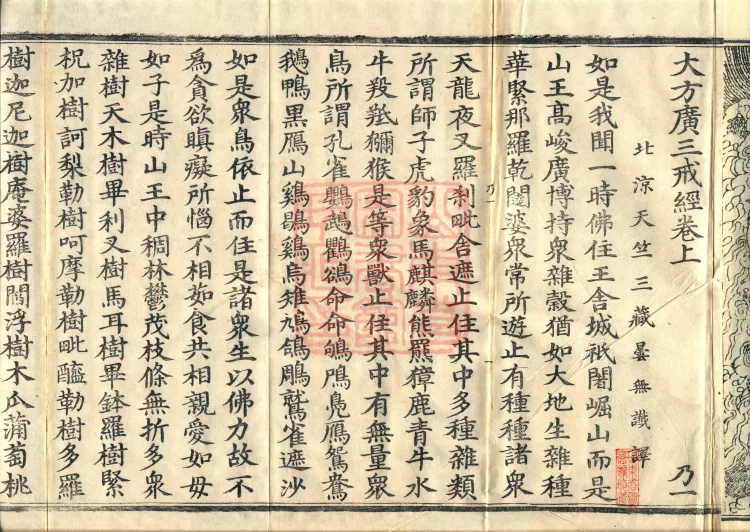 大方廣三戒經卷上 乃一
北涼天竺三藏曇無讖譯
如是我聞一時佛住王舍城祇闍崛山而是
山王高峻廣博持眾雜穀猶如大地生雜種
華緊那羅乾闥婆眾常所遊止有種種諸眾
天龍夜叉羅剎毗舍遮止住其中多種雜類
所謂師子虎豹象馬麒麟熊羆獐鹿青牛水
牛羖羝獼猴是等眾獸止住其中有無量眾
鳥所謂孔雀鸚鵡鸜鵒命命鴝鳫鳧鴈鴛鴦
鵝鴨黑鴈山鷄鶡鷄烏雉鳩鴿鵰鷲雀遮沙
如是眾鳥依止而住是諸眾生以佛力故不
為貪欲瞋癡所惱不相茹食共相親愛如母
如子是時山王中稠林鬱茂枝條無折多眾
雜樹天木樹畢利叉樹馬耳樹畢鉢羅樹緊
祝加樹訶梨勒樹呵摩勒樹毗醯勒樹多羅
樹迦尼迦樹庵婆羅樹閻浮樹木瓜蒲萄桃
乃一